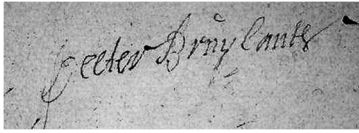 Peeter Brũylants